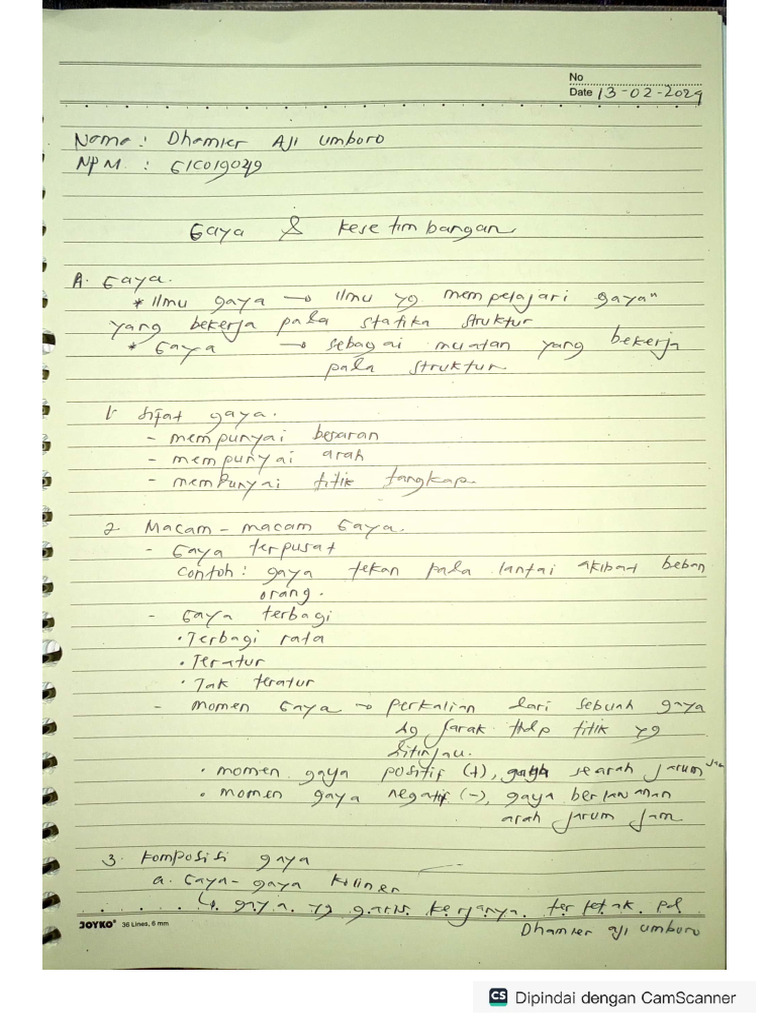 No
Date 13-02-2024
Nama : Dhamier Aji Umboro
NPM. : 61C019049
Gaya & kesetimbangan
A. Gaya.
* Ilmu gaya → Ilmu yg mempelajari gaya"
yang bekerja pada statika struktur
* Gaya → sebagai muatan yang bekerja
pada struktur
1. Sifat gaya.
- mempunyai besaran
- mempunyai arah
- mempunyai titik tangkap.
2. Macam - macam Gaya.
- Gaya terpusat
Contoh : gaya tekan pada lantai akibat beban
orang.
- Gaya terbagi
• Terbagi rata
• Teratur
• Tak teratur
- momen Gaya → perkalian dari sebuah gaya
dg jarak thdp titik yg
ditinjau.
• momen gaya positif (+), searah jarum jam
• momen gaya negatif (-), gaya berlawanan
arah jarum jam
3. Komposisi gaya
a. Gaya-gaya Koliner
↳ gaya yg garis kerjanya terletak pd
JOYKO® 36 Lines, 6 mm
Dhamier aji umboro
CS Dipindai dengan CamScanner